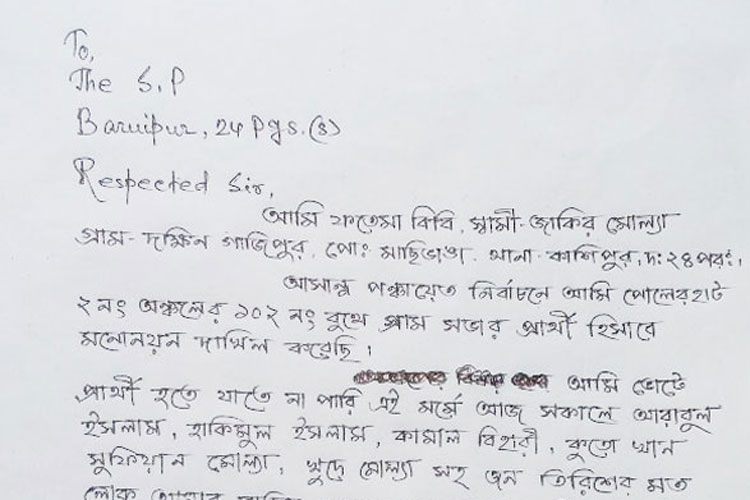 To,
The S.P
Baruipur, 24 Pgs.(s)
Respected Sir,
আমি ফতেমা বিবি, স্বামী-জাকির মোল্যা
গ্রাম- দক্ষিন গাজিপুর, পো: মাছিভাঙা থানা-কাশিপুর, দ: ২৪পর:,
আসান্ন পঞ্চায়েত নির্বাচনে আমি পোলেরহাট
২ নং অঞ্চলের ১০২ নং বুথে গ্রাম সভার প্রার্থী হিসাবে
মনোনয়ন দাখিল করেছি।
আমি ভোটে
প্রার্থী হতে যাতে না পারি এই মর্মে আজ সকালে আরাবুল
ইসলাম, হাকিমুল ইসলাম, কামাল বিহারী, কুতো খান
সুফিয়ান মোল্যা, খুদে মোল্যা সহ জন তিরিশের মত
লোক